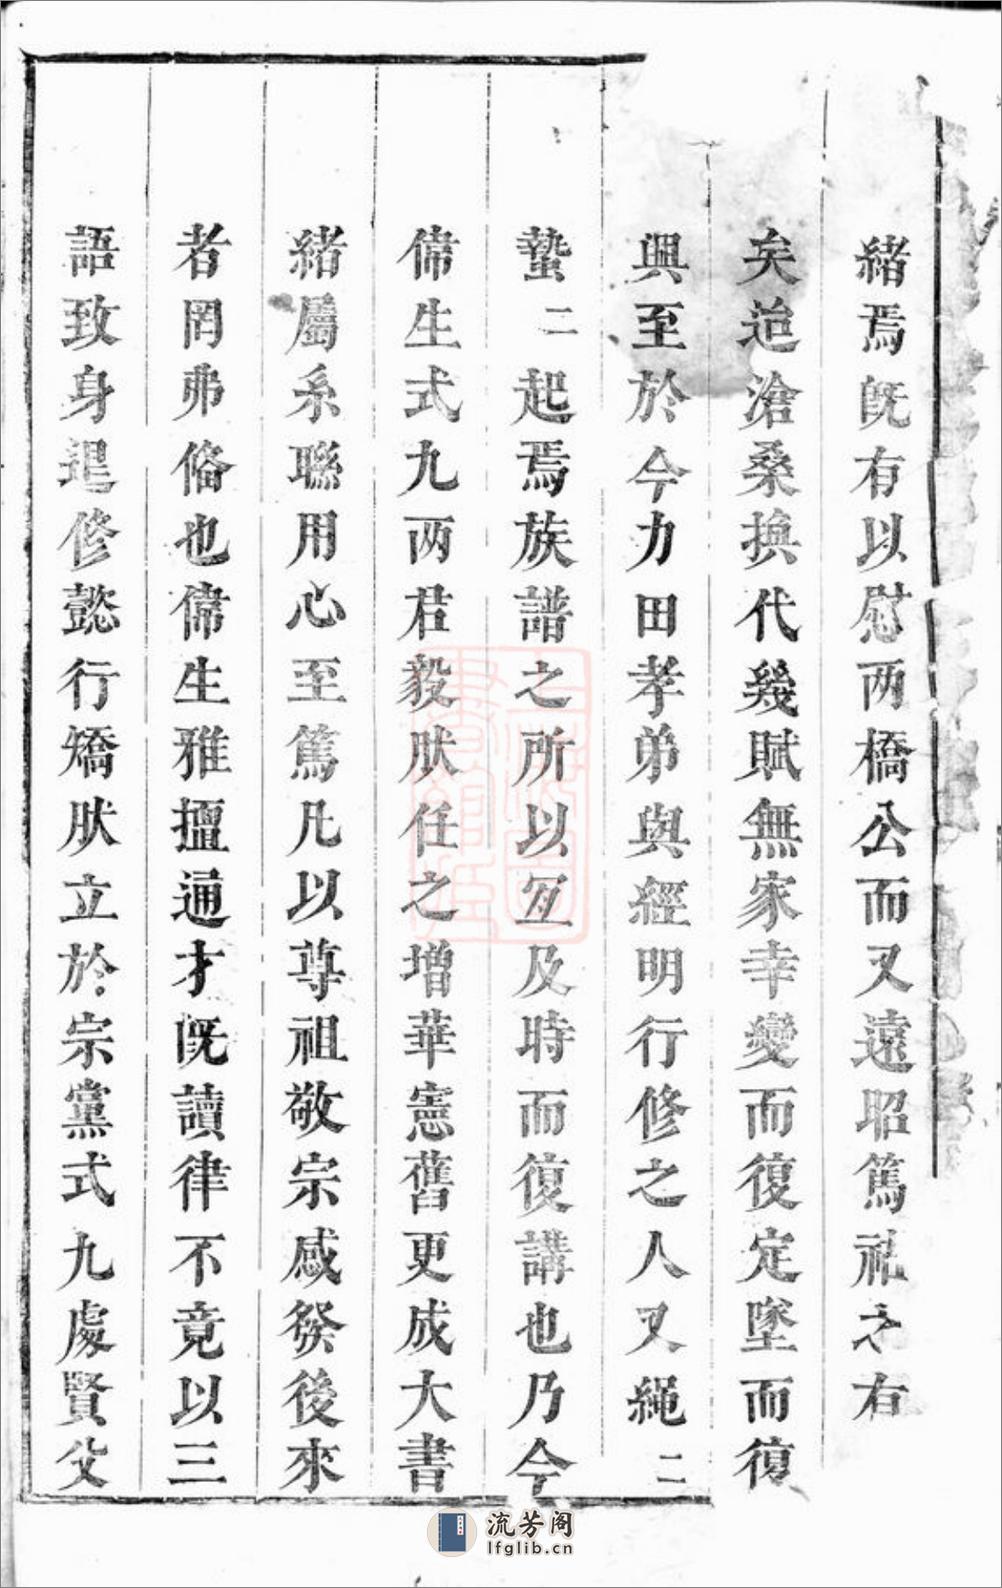 緒焉既有以慰两橋公而又遠昭篤祜之有
矣迨滄桑換代幾賦無家幸變而復定墜而復
興至於今力田孝弟與經明行修之人又繩二
蟄二起焉族譜之所以亙及時而復講也乃今
偉生式九两君毅肰任之增華憲舊更成大書
緒屬系聯用心至篤凡以尊祖敬宗感發後來
者罔弗俻也偉生雅擅通才既讀律不竟以三
語致身退修懿行矯肰立於宗黨式九處賢父
上海圖書館藏
流芳阁
lfglib.cn